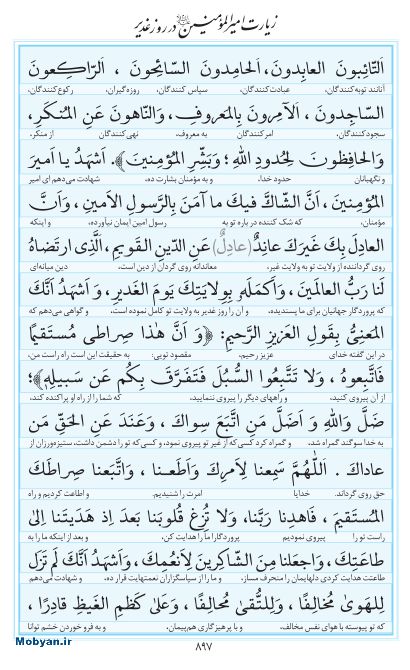 زیارت امیرالمؤمنین در روز غدیر
اَلتّائِبونَ العابِدونَ، اَلحامِدونَ السّائِحونَ ، اَلرّاكِعونَ
آنانند توبه‌کنندگان، عبادت‌کنندگان، سپاس کنندگان، روزه‌گیران، رکوع‌کنندگان،
السّاجِدونَ، اَلآمِرونَ بِالمَعروفِ، وَالنّاهونَ عَنِ المُنكَرِ،
سجودکنندگان، امرکنندگان به معروف، نهی‌کنندگان از منکر،
وَالحافِظونَ لِحُدودِ اللهِ ؛ وَبَشِّرِ المُؤمِنينَ﴾. اَشهَدُ يا اَميرَ
و نگهبانان حدود خدا، و به مؤمنان بشارت ده، شهادت می‌دهم ای امیر
المُؤمِنينَ، اَنَّ الشّاكَّ فيكَ ما آمَنَ بِالرَّسولِ الاَمينِ، وَاَنَّ
مؤمنان، که شک کننده در باره تو به رسول امین ایمان نیاورده، و اینکه
العادِلَ بِكَ غَيرَكَ عانِدٌ (عادِلٌ) عَنِ الدّينِ القَويمِ، الَّذِى ارتَضاهُ
روی گرداننده از ولایت تو به ولایت غیر، معاندانه روی گردان از دین است، دین میانه‌ای
لَنا رَبُّ العالَمينَ، وَاَكمَلَهُ بِوِلايَتِكَ يَومَ الغَديرِ، وَ اَشهَدُ اَنَّكَ
که پروردگار جهانیان برای ما پسندیده و آن را روز غدیر به ولایت تو کامل نموده است، و گواهی می‌دهم که
المَعنِىُّ بِقَولِ العَزيزِ الرَّحيمِ: ﴿وَ اَنَّ هٰذا صِراطى مُستَقيمًا
در این گفته خدای عزیز رحیم، مقصود تویی: به حقیقت این است راه راست من،
فَاتَّبِعوهُ ، وَلا تَتَّبِعُوا السُّبُلَ فَتَفَرَّقَ بِكُم عَن سَبيلِهِ﴾؛
از آن پیروی کنید، و راههای دیگر را پیروی ننمایید، که شما را از راه او پراکنده کند،
ضَلَّ وَاللهِ وَ اَضَلَّ مَنِ اتَّبَعَ سِواكَ ، وَعَنَدَ عَنِ الحَقِّ مَن
به خدا سوگند گمراه شد، و گمراه کرد کسی که از غیر تو پیروی نمود، و کسی که تو را دشمن داشت، ستیزه‌ورزان از
عاداكَ . اَللّٰهُمَّ سَمِعنا لِاَمرِكَ وَاَطَعنا ، وَاتَّبَعنا صِراطَكَ
حق روی گرداند. خدایا امرت را شنیدیم، و اطاعت کردیم و راه
المُستَقيمَ ، فَاهدِنا رَبَّنا، وَلا تُزِغ قُلوبَنا بَعدَ اِذ هَدَيتَنا اِلىٰ
راست تو را پیروی نمودیم پروردگارا ما را هدایت کن، و بعد از اینکه ما را به
طاعَتِكَ ، وَاجعَلنا مِنَ الشّاكِرينَ لِاَنعُمِكَ. وَاَشهَدُ اَنَّكَ لَم تَزَل
طاعتت هدایت کردی دلهایمان را منحرف مساز، و ما را از سپاسگزاران نعمتهایت قرار ده، و شهادت می‌دهم
لِلهَوىٰ مُخالِفًا ، وَلِلتُّقىٰ مُحالِفًا ، وَعَلىٰ كَظمِ الغَيظِ قادِرًا ،
که تو پیوسته با هوای نفس مخالف، و با پرهیزگاری هم‌پیمان، و به فرو خوردن خشم توانا
۸۹۷
Mobyan.ir